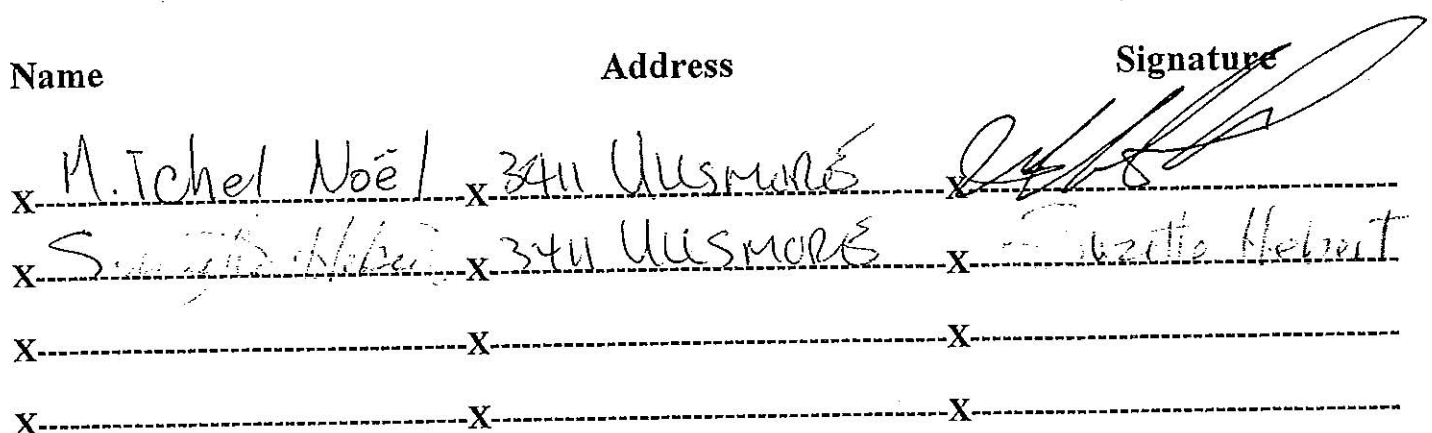 Name Address Signature
X M.Ichel Noël X 3411 Ullsmore X
X X 3411 Ullsmore X Suzette Hebert
X X X
X X X